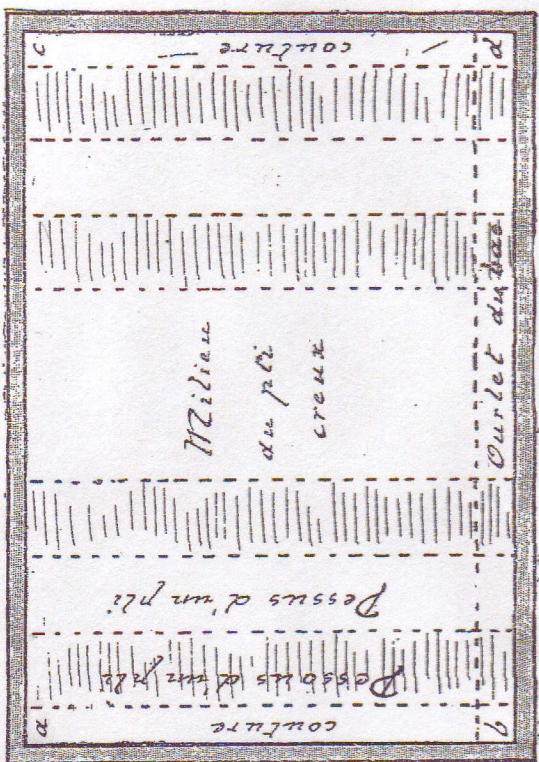 c
couture
d
Milieu
du pli
creux
Ourlet du bas
Dessus d'un pli
Dessous d'un pli
a
couture